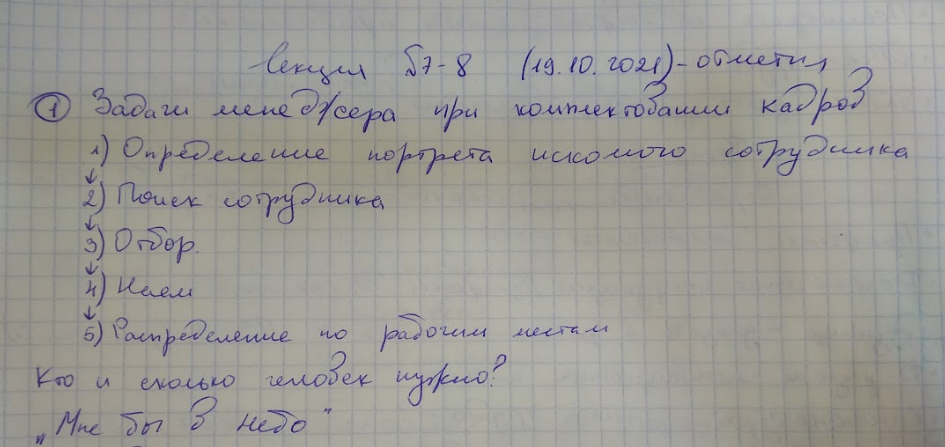 Лекция №7-8 (19.10.2021) - отметил
① Задачи менеджера при комплектовании кадров
1) Определение портрета искомого сотрудника
↓
2) Поиск сотрудника
↓
3) Отбор.
↓
4) Наем
↓
5) Распределение по рабочим местам
Кто и сколько человек нужно?
„Мне бы в небо"